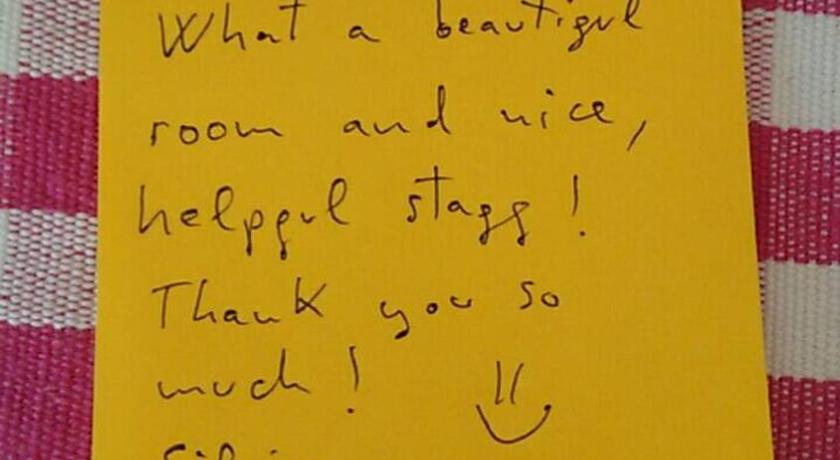 What a beautiful
room and nice,
helpful staff!
Thank you so
much!